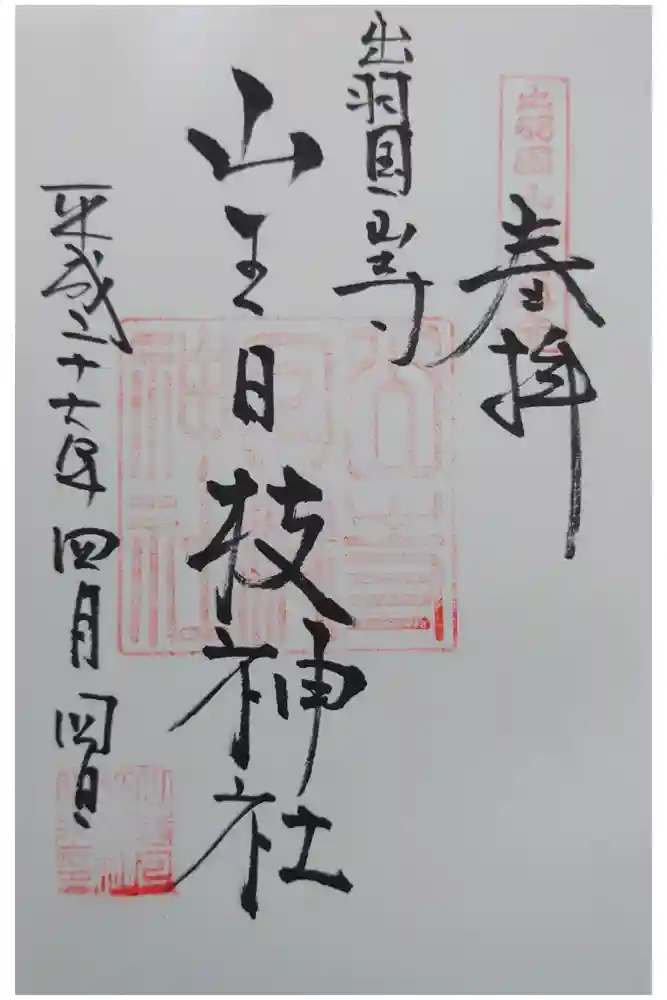 奉拝
出羽国山寺
山王日枝神社
平成二十六年四月四日